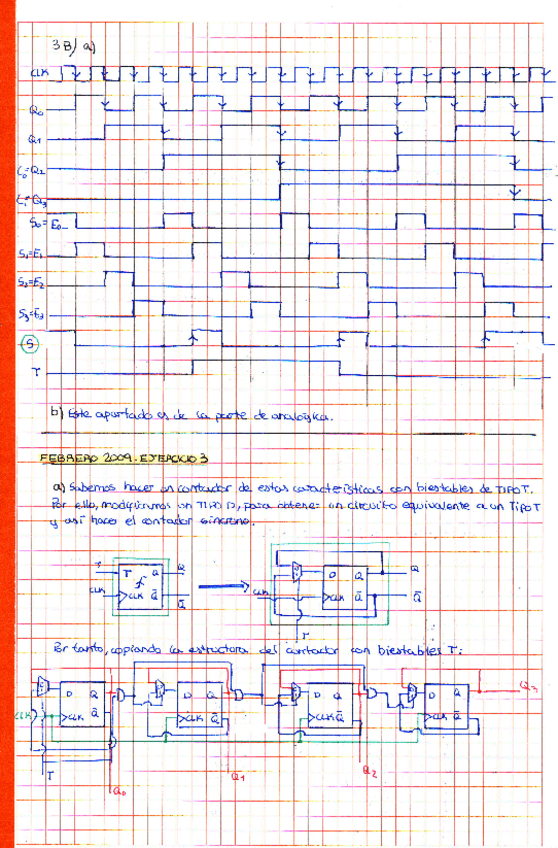 3B) a)
CLK
Q0
Q1
C0=Q2
C1=Q3
S0=E0
S1=E1
S2=E2
S3=E3
S
T
b) Este apartado es de la parte de analógica.
FEBRERO 2009. EJERCICIO 3
a) Sabemos hacer un contador de estas características con biestables de TIPO T.
Por ello, modificamos un TIPO D, para obtener un circuito equivalente a un TIPO T
y así hacer el contador síncrono.
T T Q Q
CLK CLK Q̅ Q̅
D Q Q
CLK CLK Q̅ Q̅
T
Por tanto, copiando la estructura del contador con biestables T:
D Q D Q D Q D Q Q3
CLK CLK Q̅ CLK Q̅ CLK Q̅ CLK Q̅
T
Q0 Q1 Q2